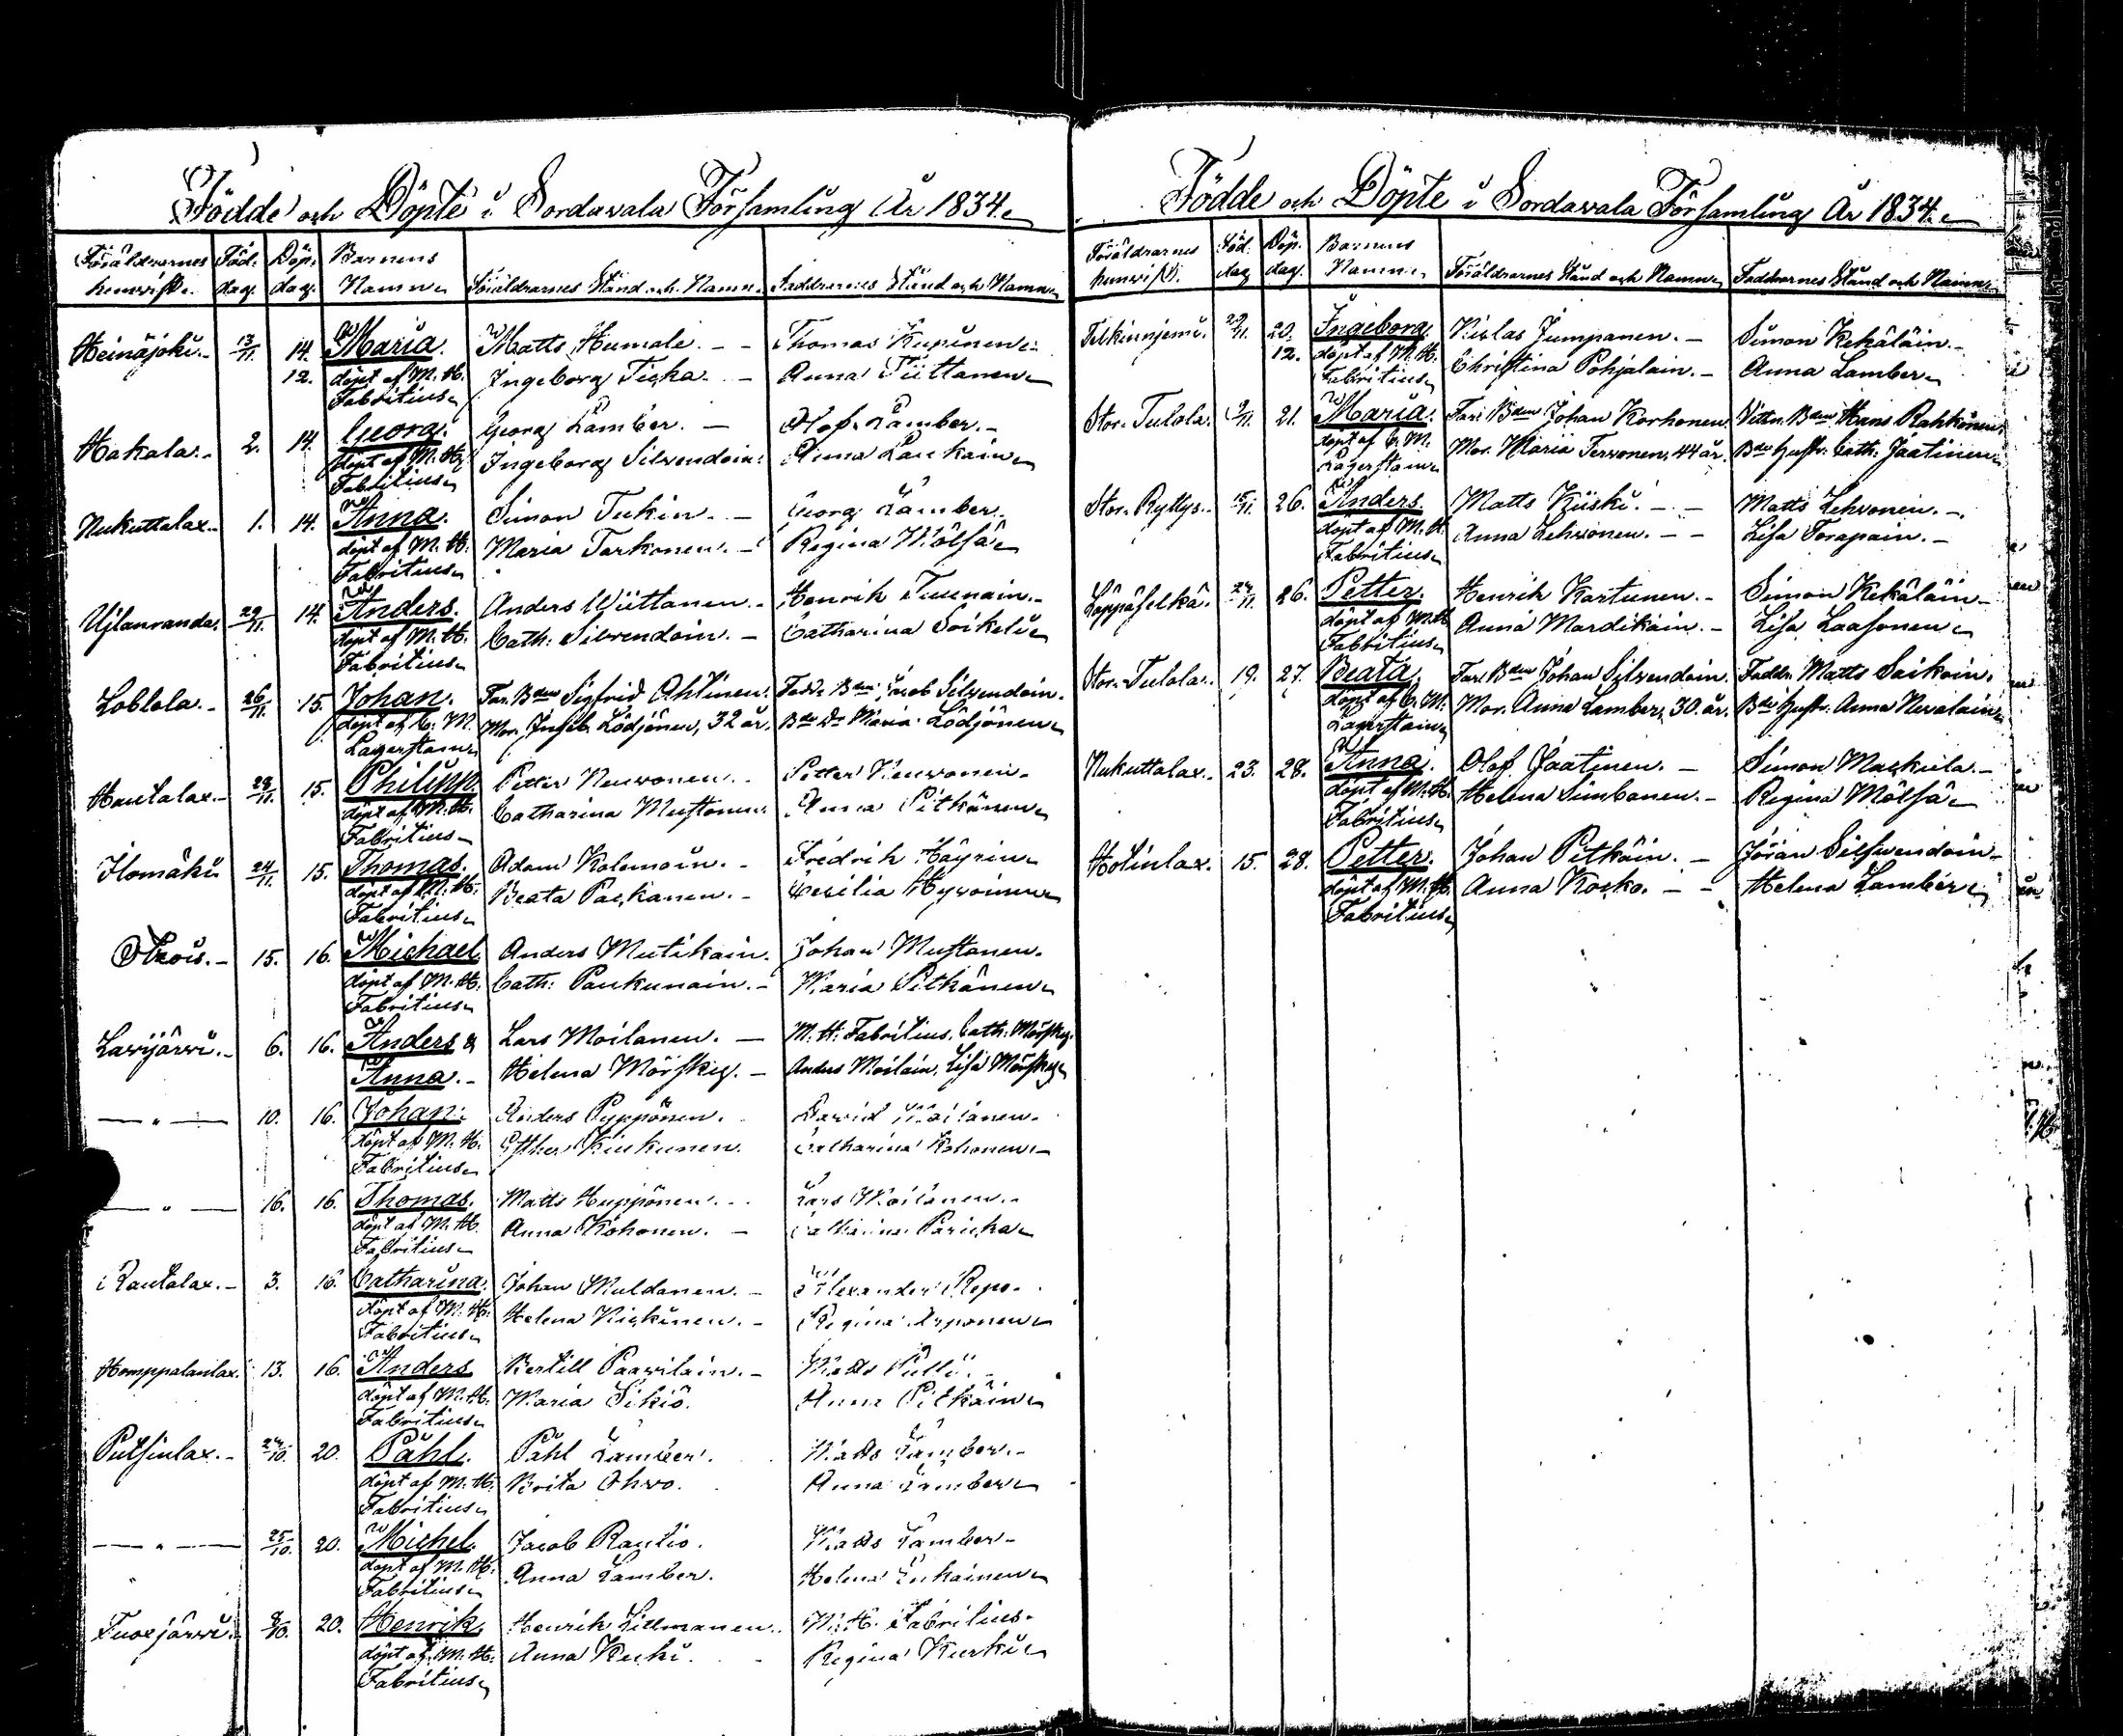 Födde och Döpte i Sordavala Församling År 1834.
Föräldrarnes Föd. Döp. Barnens
hemvist. dag. dag. Namn Föräldrarnes Stånd och Namn. Faddrarnes Stånd och Namn
Heinäjoki. 13/11. 14. Maria. Matts Humale. Thomas Kupinen
12. döpt af M. H. Ingeborg Ticka. Anna Tiittanen
Fabritius
Hakala. 2. 14. Georg. Georg Lamber. Olof Lamber.
döpt af M. H. Ingeborg Silvendoin. Anna Laukain
Fabritius
Nukuttalax. 1. 14. Anna. Simon Tukin. Georg Lamber.
döpt af M. H. Maria Tarkonen. Regina Mölsä
Fabritius
Ujlanranda. 29/11. 14. Anders. Anders Wiittanen. Henrik Tuunain.
döpt af M. H. Cath: Silvendoin. Catharina Soikeli
Fabritius
Loblola. 26/11. 15. Johan. Far. Bden Sigfrid Ahtinen. Fadd. Bden Jacob Silvendoin.
döpt af C. M. Mor. Ingeb. Lödjönen, 32 år. Bde Dr Maria Lödjönen
Lagerstam
Hautalax. 28/11. 15. Philipp. Petter Neuvonen. Petter Neuvonen.
döpt af M. H. Catharina Mustonen. Anna Pitkänen
Fabritius
Ilomäki 24/11. 15. Thomas. Adam Kolemain. Fredrik Häyrin
döpt af M. H. Beata Packanen. Cecilia Hyvoinen
Fabritius
Otrois. 15. 16. Michael Anders Mutikain. Johan Mustonen.
döpt af M. H. Cath: Paukunain. Maria Pitkänen
Fabritius
Lavijärvi. 6. 16. Anders & Lars Moilanen. M. H. Fabritius, Cath: Mörsky.
Anna. Helena Mörsky. Anders Moilain, Lisa Mörsky
— " — 10. 16. Johan. Anders Pyppönen. David Moilanen.
döpt af M. H. Esther Kiukunen. Catharina Kohonen
Fabritius
— " — 16. 16. Thomas. Matts Huppönen. Lars Moilanen.
döpt af M. H. Anna Kohonen. Catharina Paricka
Fabritius
Rautalax. 3. 16. Catharina. Johan Muldanen. Alexander Repo.
döpt af M. H. Helena Kickinen. Regina Arponen
Fabritius
Homppalanlax. 13. 16. Anders Bertill Paavilain. Matts Pulli.
döpt af M. H. Maria Sikiö. Anna Pitkäin
Fabritius
Putsinlax. 24/10. 20. Påhl. Påhl Lamber. Matts Lamber.
döpt af M. H. Brita Ohvo. Anna Lamber
Fabritius
— " — 25/10. 20. Michel. Jacob Rautio. Matts Lamber
döpt af M. H. Anna Lamber. Helena Laukainen
Fabritius
Tuoxjärvi. 8/10. 20. Henrik. Henrik Lillmanen. M. H. Fabritius.
döpt af M. H. Anna Kuki. Regina Kurki
Fabritius
Födde och Döpte i Sordavala Församling År 1834.
Föräldrarnes Föd. Döp. Barnens
hemvist. dag dag. Namn Föräldrarnes Stånd och Namn Faddrarnes Stånd och Namn
Telkinnjemi. 29/11. 20. Ingeborg Niclas Jumpanen. Simon Kekäläin.
12. döpt af M. H. Christina Pohjalain. Anna Lamber
Fabritius
Stor. Tulola. 9/11. 21. Maria. Far. Bden Johan Korhonen. Vittn. Bden Hans Rahkonen.
döpt af C. M. Mor. Maria Tervonen, 44 år. Bde hustr. Cath: Jaatinen
Lagerstam
Stor. Ryttys. 15/11. 26. Anders. Matts Kiiski. Matts Lehvonen.
döpt af M. H. Anna Lehvonen. Lisa Torapain.
Fabritius
Läppäselkä. 24/11. 26. Petter. Henrik Kartunen. Simon Kekäläin
döpt af M. H. Anna Mardikain. Lisa Laasonen
Fabritius
Stor. Tulola. 19. 27. Beata. Far. Bden Johan Silvendoin. Faddr. Matts Saikoin.
döpt af C. M. Mor. Anna Lamber, 30. år. Bdes Hustr. Anna Nevalain
Lagerstam
Nukuttalax. 23. 28. Anna. Olof Jaatinen. Simon Mackula.
döpt af M. H. Helena Simbanen. Regina Mölsä
Fabritius
Hotinlax. 15. 28. Petter. Johan Pitkäin. Jöran Silfwendoin
döpt af M. H. Anna Kosko. Helena Lamber
Fabritius